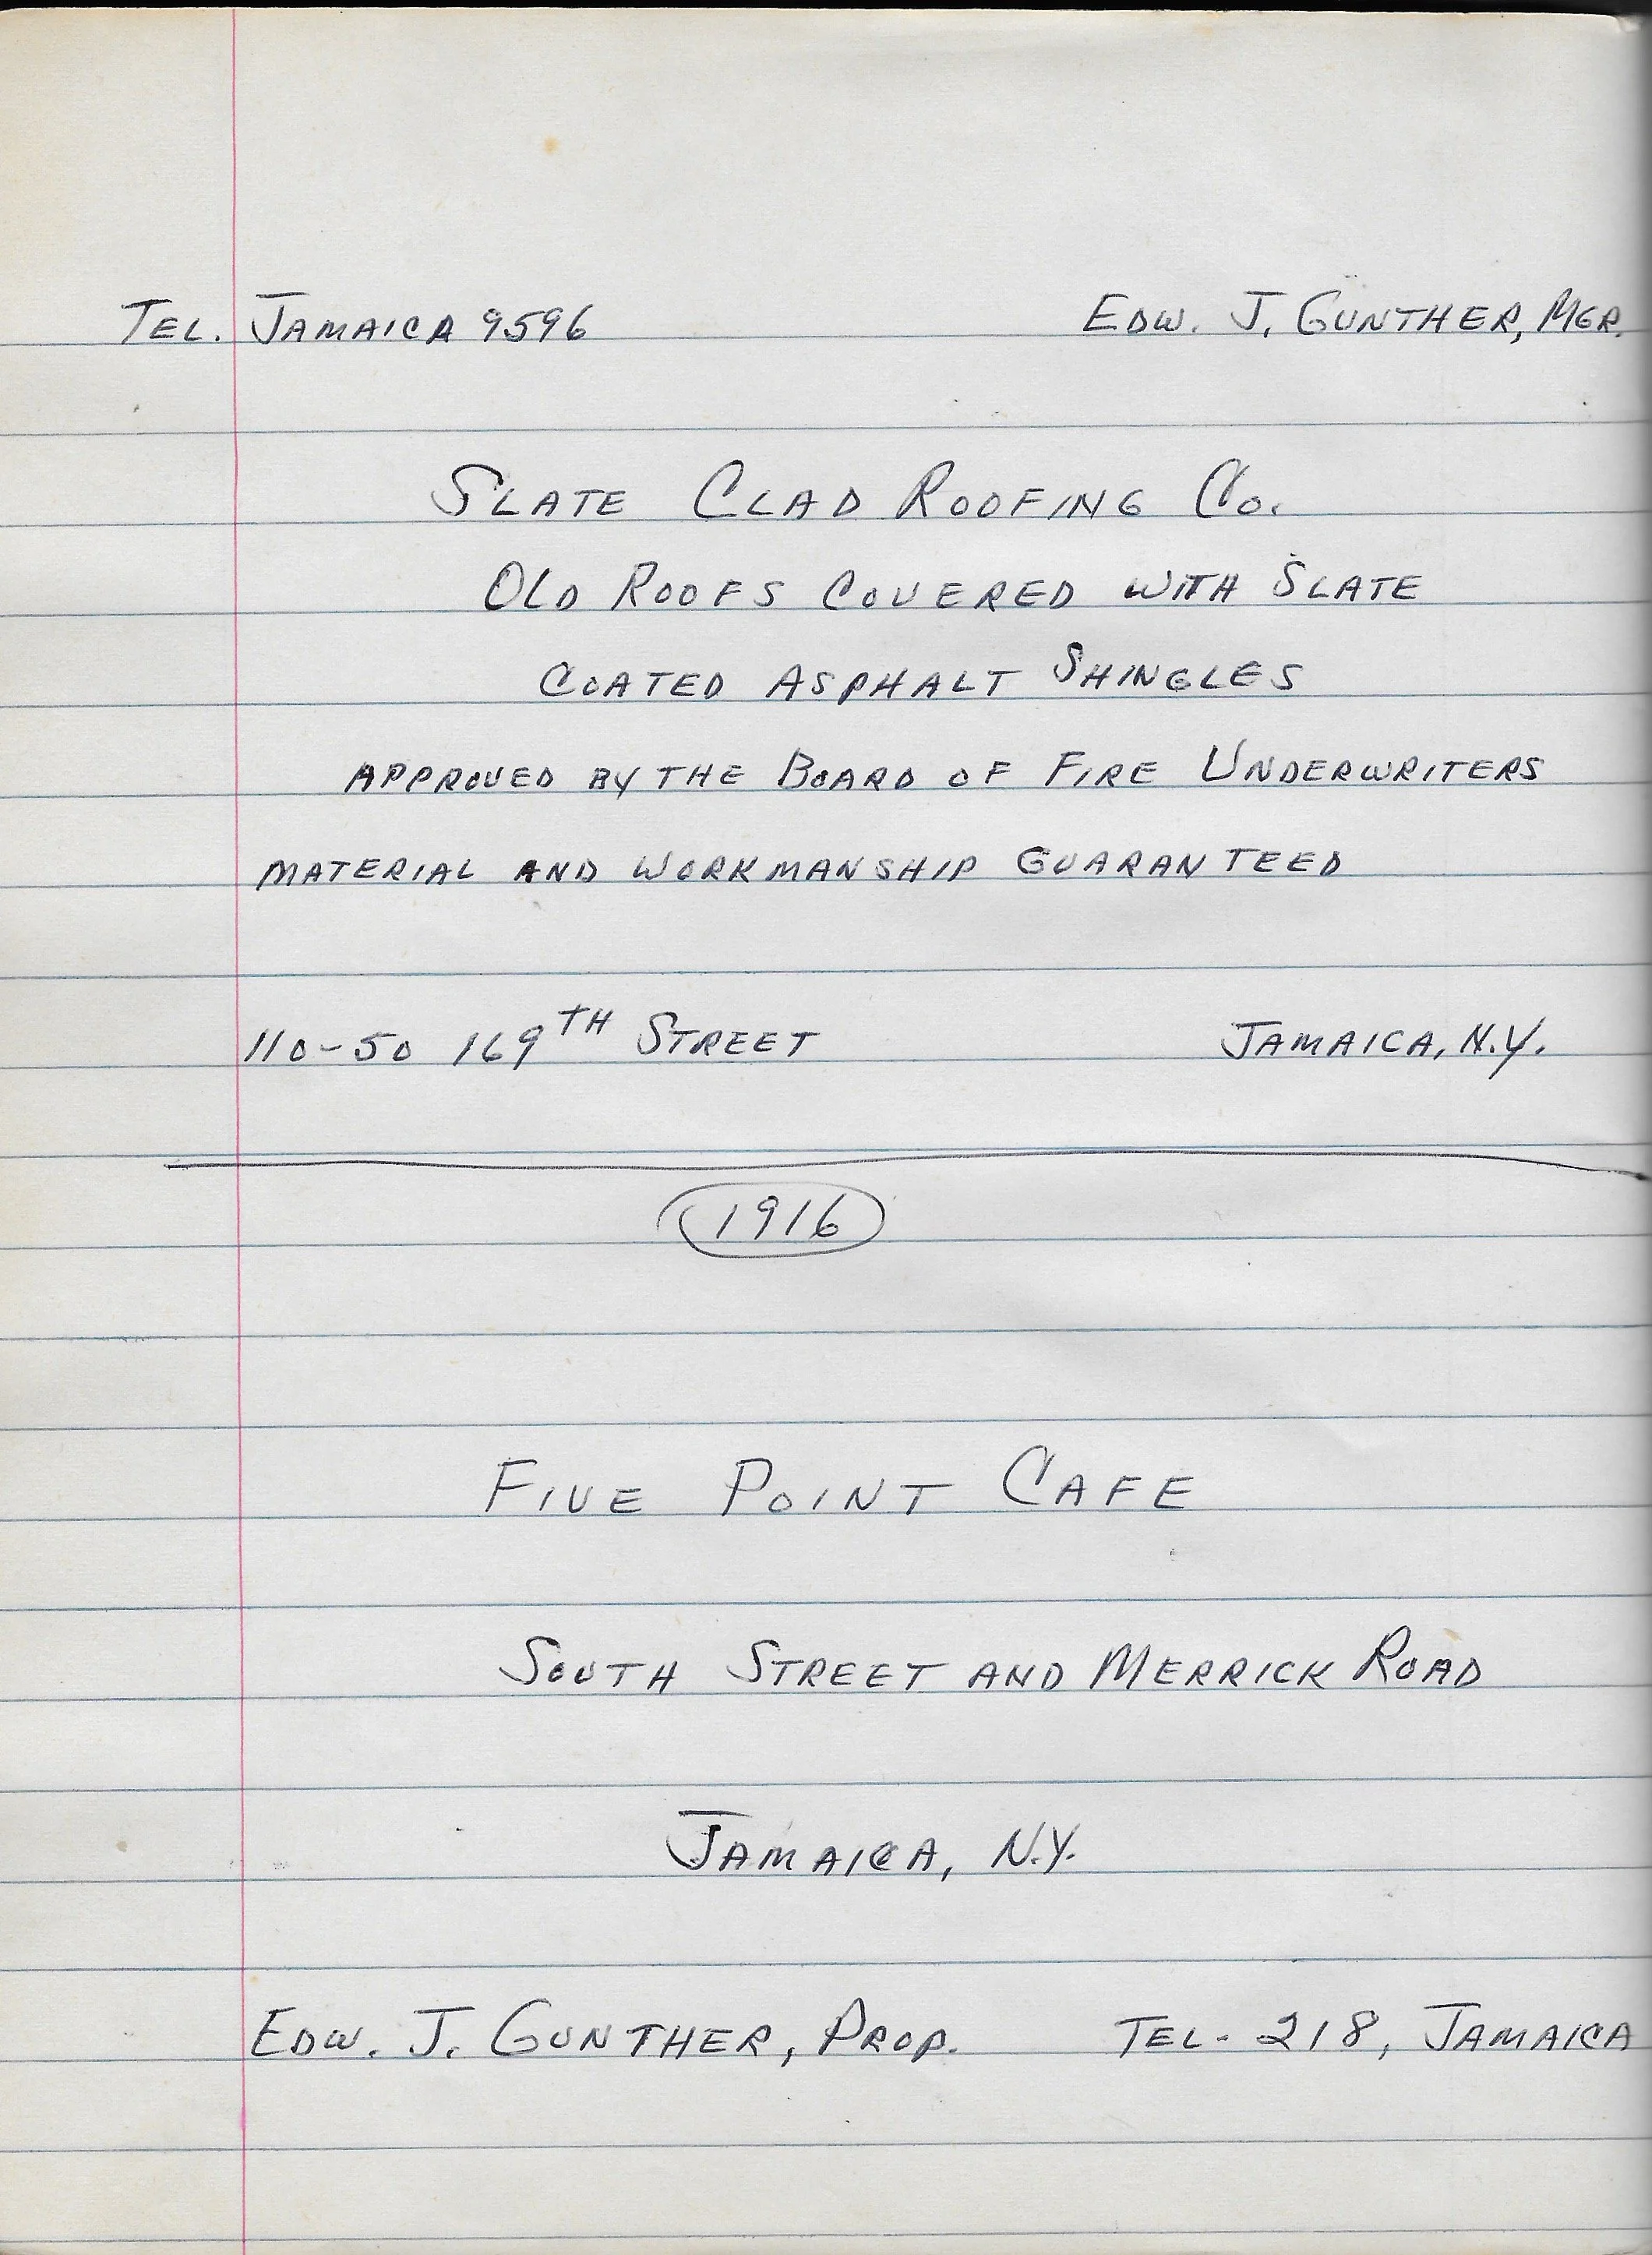 TEL. JAMAICA 9596 EDW. J. GUNTHER, MGR.
SLATE CLAD ROOFING CO.
OLD ROOFS COVERED WITH SLATE
COATED ASPHALT SHINGLES
APPROVED BY THE BOARD OF FIRE UNDERWRITERS
MATERIAL AND WORKMANSHIP GUARANTEED
110-50 169TH STREET JAMAICA, N.Y.
1916
FIVE POINT CAFE
SOUTH STREET AND MERRICK ROAD
JAMAICA, N.Y.
EDW. J. GUNTHER, PROP. TEL- 218, JAMAICA